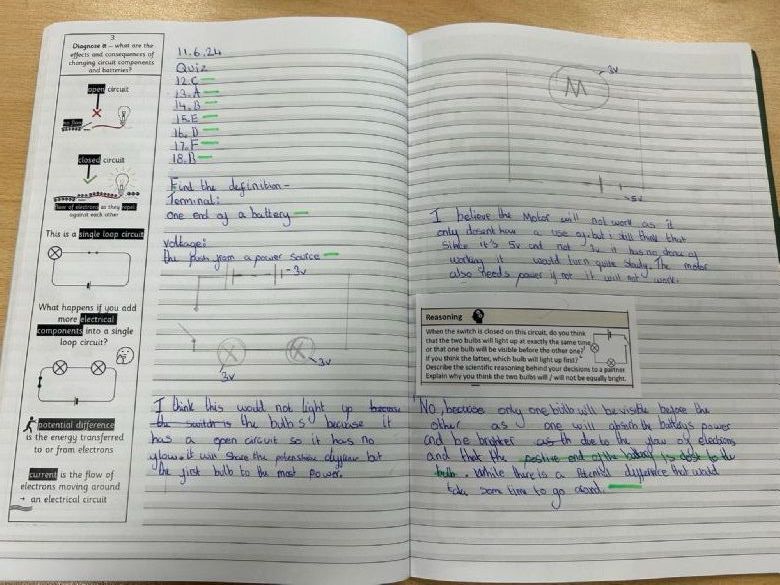 3
Diagnose it - what are the
effects and consequences of
changing circuit components
and batteries?
open circuit
no flow
closed circuit
flow of electrons as they repel
against each other
This is a single loop circuit
What happens if you add
more electrical
components into a single
loop circuit?
potential difference
is the energy transferred
to or from electrons
current is the flow of
electrons moving around
→ an electrical circuit
11.6.24
Quiz
12.C
13.A
14.B
15.E
16.D
17.F
18.B
Find the definition-
Terminal:
one end of a battery
voltage:
the push from a power source
3v
3v
3v
I think this would not light up because
the switch is the bulbs because it
has a open circuit so it has no
it will share the but
the first bulb to the most power.
M
3v
5v
I believe the Motor will not work as it
only doesnt have a use of, but i still think that
Since it's 5v and not 3v it has no chance of
working it would turn quite The motor
also needs power if not it will not work.
Reasoning
When the switch is closed on this circuit, do you think
that the two bulbs will light up at exactly the same time
or that one bulb will be visible before the other one?
If you think the latter, which bulb will light up first?
Describe the scientific reasoning behind your decisions to a partner
Explain why you think the two bulbs will / will not be equally bright.
No, because only one bulb will be visible before the
other as one will absorb the battery's power
and be brighter as th due to the flow of electrons
and that the positive end of the battery is closest to the
bulb. While there is a Potential difference that would
take some time to go around.